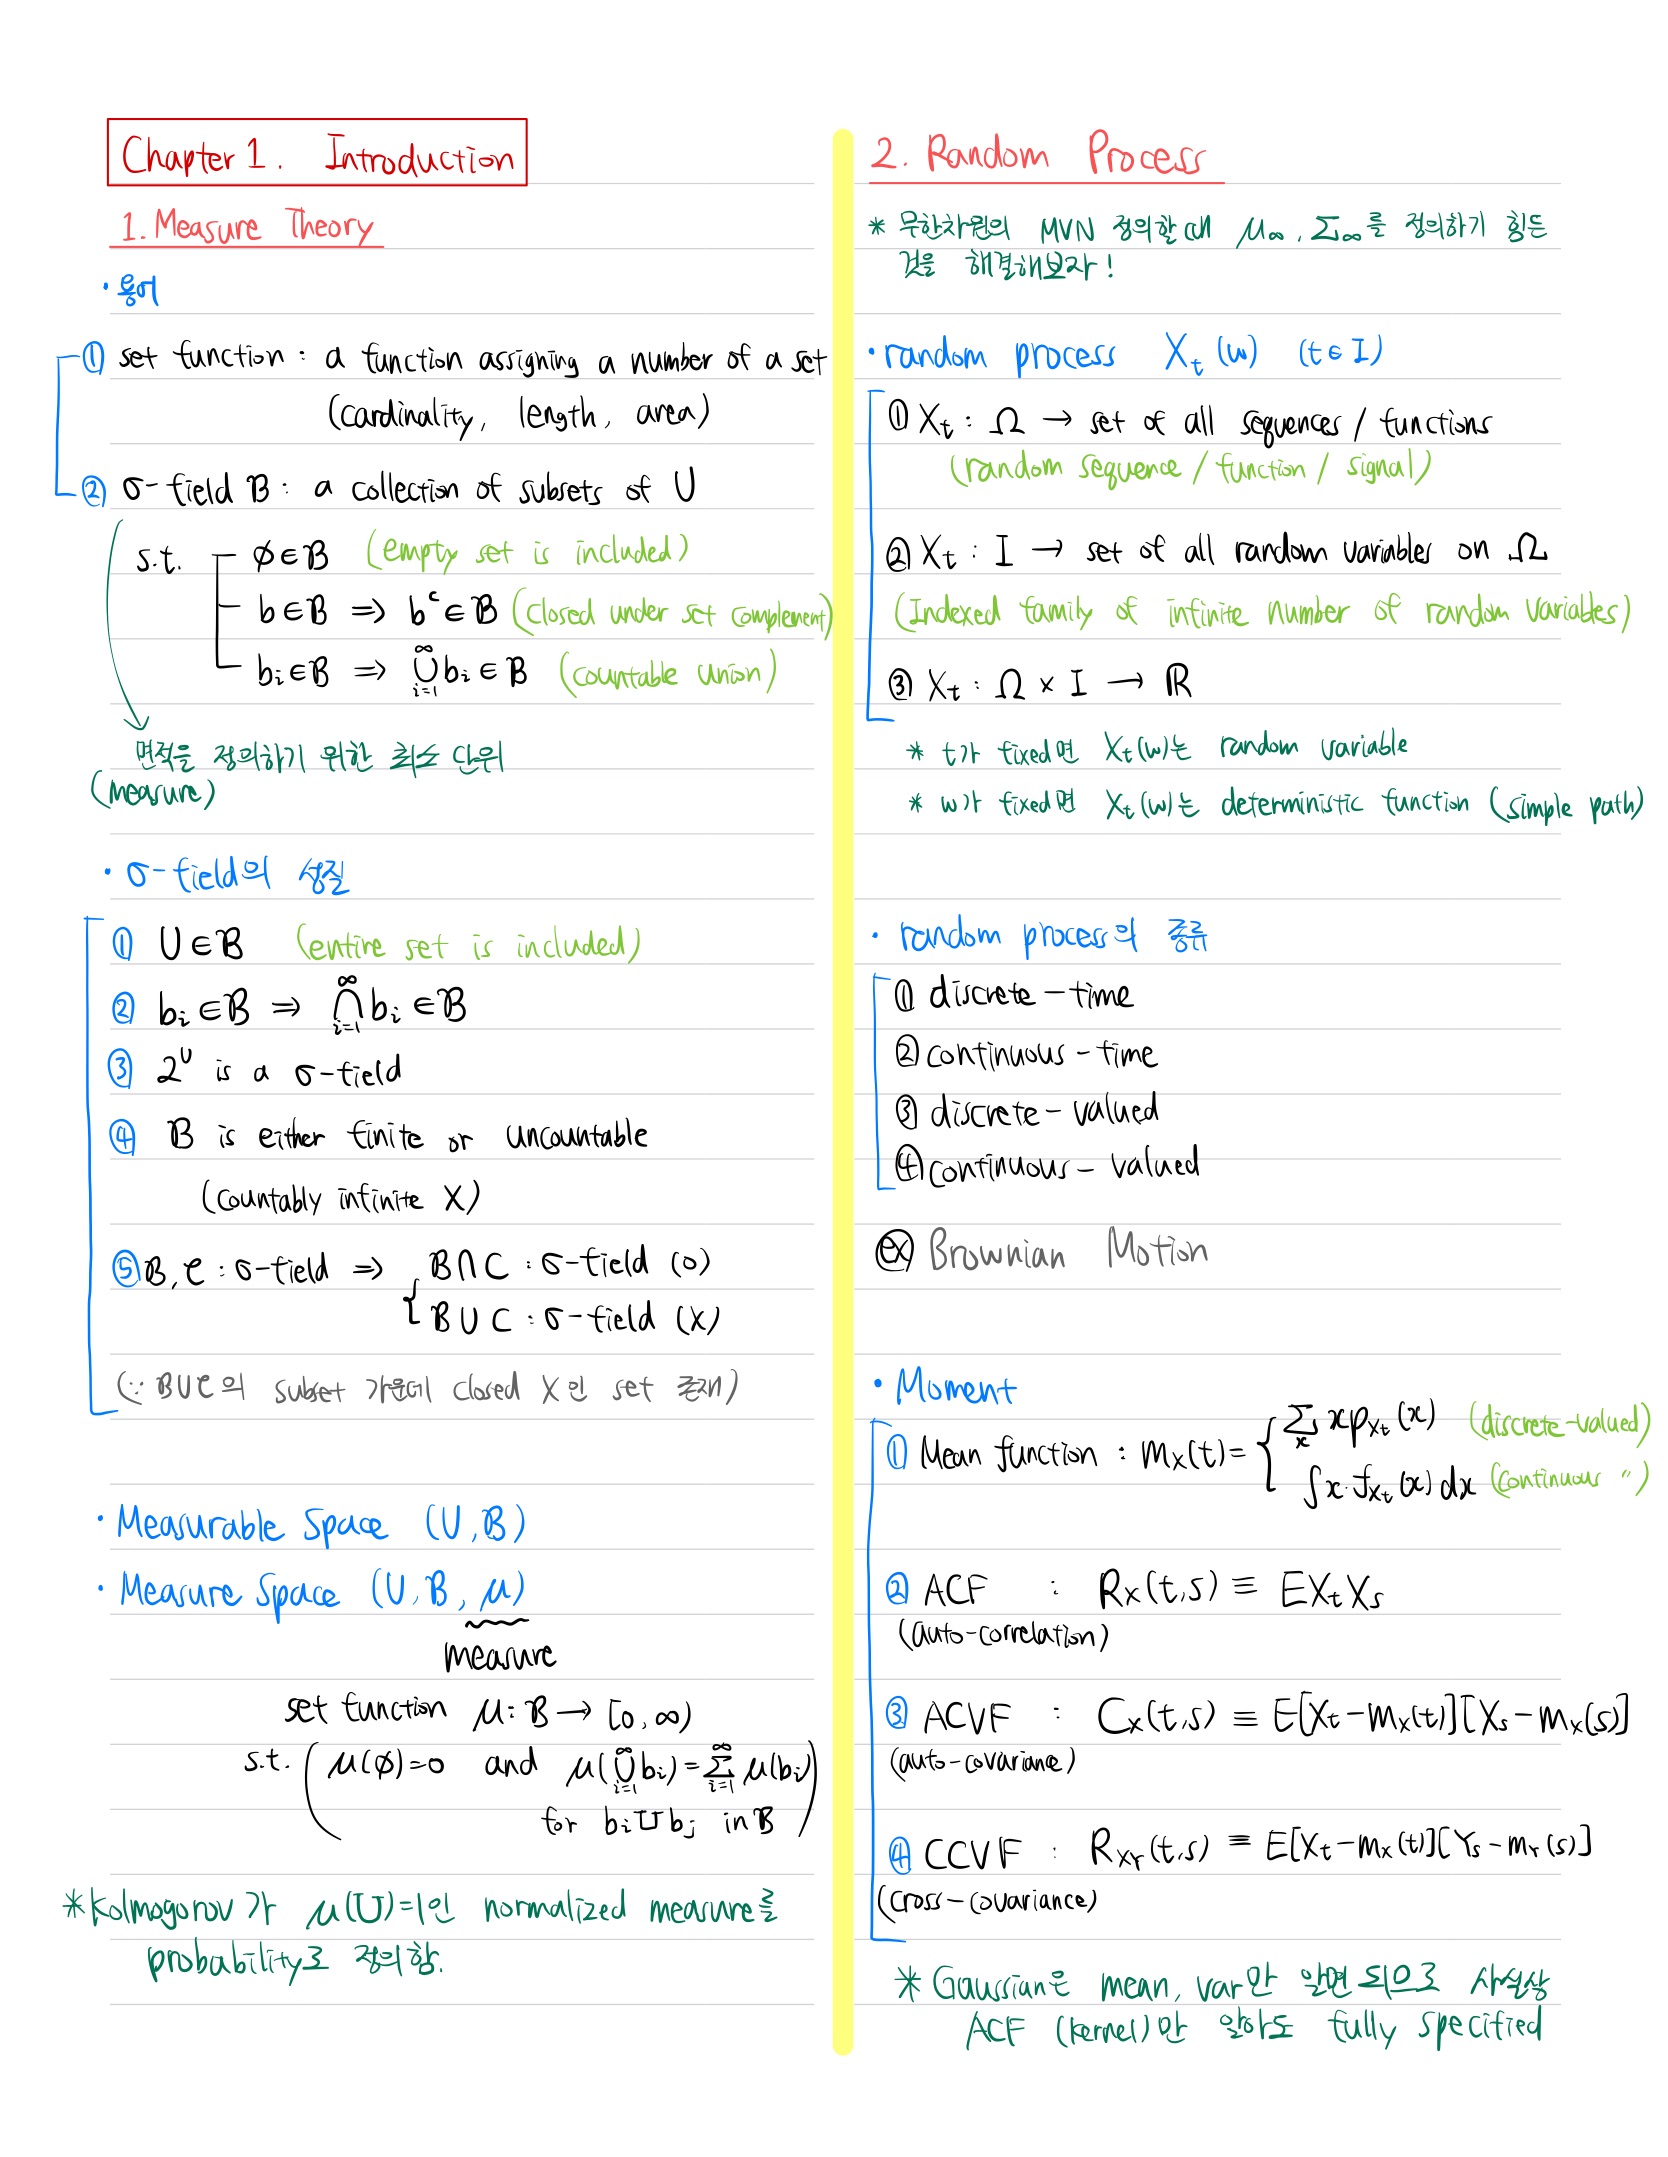 Chapter 1. Introduction
1. Measure Theory
· 용어
① set function : a function assigning a number of a set
(cardinality, length, area)
② σ-field ℬ : a collection of subsets of U
s.t. ∅∈ℬ (empty set is included)
b∈ℬ ⇒ bᶜ∈ℬ (closed under set complement)
bᵢ∈ℬ ⇒ ∪_{i=1}^{∞} bᵢ∈ℬ (countable union)
면적을 정의하기 위한 최소 단위
(measure)
· σ-field의 성질
① U∈ℬ (entire set is included)
② bᵢ∈ℬ ⇒ ∩_{i=1}^{∞} bᵢ∈ℬ
③ 2^U is a σ-field
④ ℬ is either finite or uncountable
(countably infinite X)
⑤ ℬ, 𝒞 : σ-field ⇒ { ℬ∩C : σ-field (o)
ℬ∪C : σ-field (X)
(∵ ℬ∪𝒞의 subset 가운데 closed X인 set 존재)
· Measurable Space (U, ℬ)
· Measure Space (U, ℬ, μ)
measure
set function μ : ℬ → [0, ∞)
s.t. ( μ(∅)=0 and μ(∪_{i=1}^{∞} bᵢ)=Σ_{i=1}^{∞} μ(bᵢ)
for bᵢ ⊔ bⱼ in ℬ )
* Kolmogorov가 μ(U)=1인 normalized measure를
probability로 정의함.
2. Random Process
* 무한차원의 MVN 정의할 때 μ∞, Σ∞를 정의하기 힘든
것을 해결해보자!
· random process Xₜ(w) (t∈I)
① Xₜ : Ω → set of all sequences / functions
(random sequence / function / signal)
② Xₜ : I → set of all random variables on Ω
(Indexed family of infinite number of random variables)
③ Xₜ : Ω × I → ℝ
* t가 fixed면 Xₜ(w)는 random variable
* w가 fixed면 Xₜ(w)는 deterministic function (simple path)
· random process의 종류
① discrete-time
② continuous-time
③ discrete-valued
④ continuous-valued
ex Brownian Motion
· Moment
① Mean function : m_X(t) = { Σ_x x p_{Xₜ}(x) (discrete-valued)
∫x·f_{Xₜ}(x)dx (continuous 〃)
② ACF : R_X(t,s) ≡ EXₜXₛ
(auto-correlation)
③ ACVF : C_X(t,s) ≡ E[Xₜ-m_X(t)][Xₛ-m_X(s)]
(auto-covariance)
④ CCVF : R_{XY}(t,s) ≡ E[Xₜ-m_X(t)][Yₛ-m_Y(s)]
(cross-covariance)
* Gaussian은 mean, var만 알면 되므로 사실상
ACF (kernel)만 알아도 fully specified